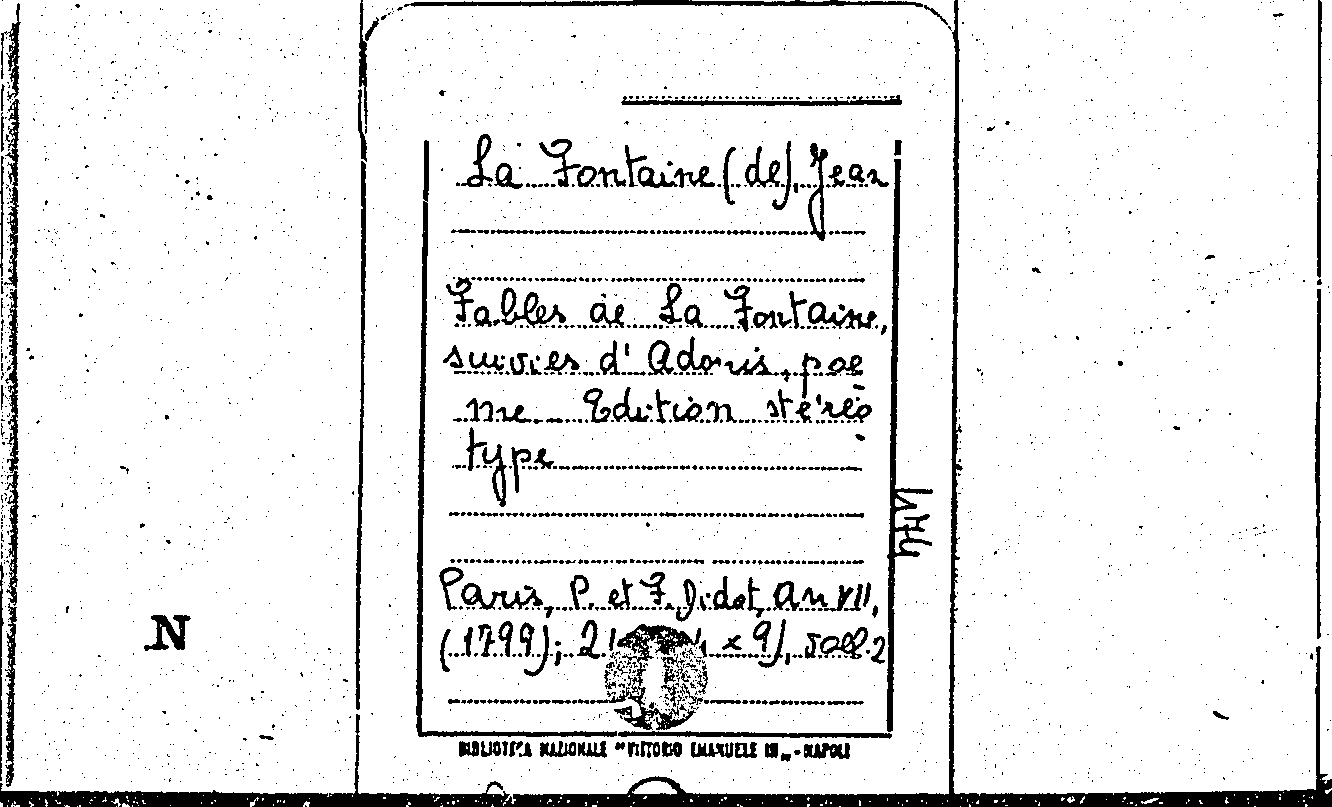 La Fontaine (de), Jean
Fables de La Fontaine,
suivies d'Adonis, poe
me. Edition stéréo
type
Paris, P. et F. Didot, an VII,
(1799); 2 x 9), 2
N
BIBLIOTECA NAZIONALE "VITTORIO EMANUELE III" - NAPOLI